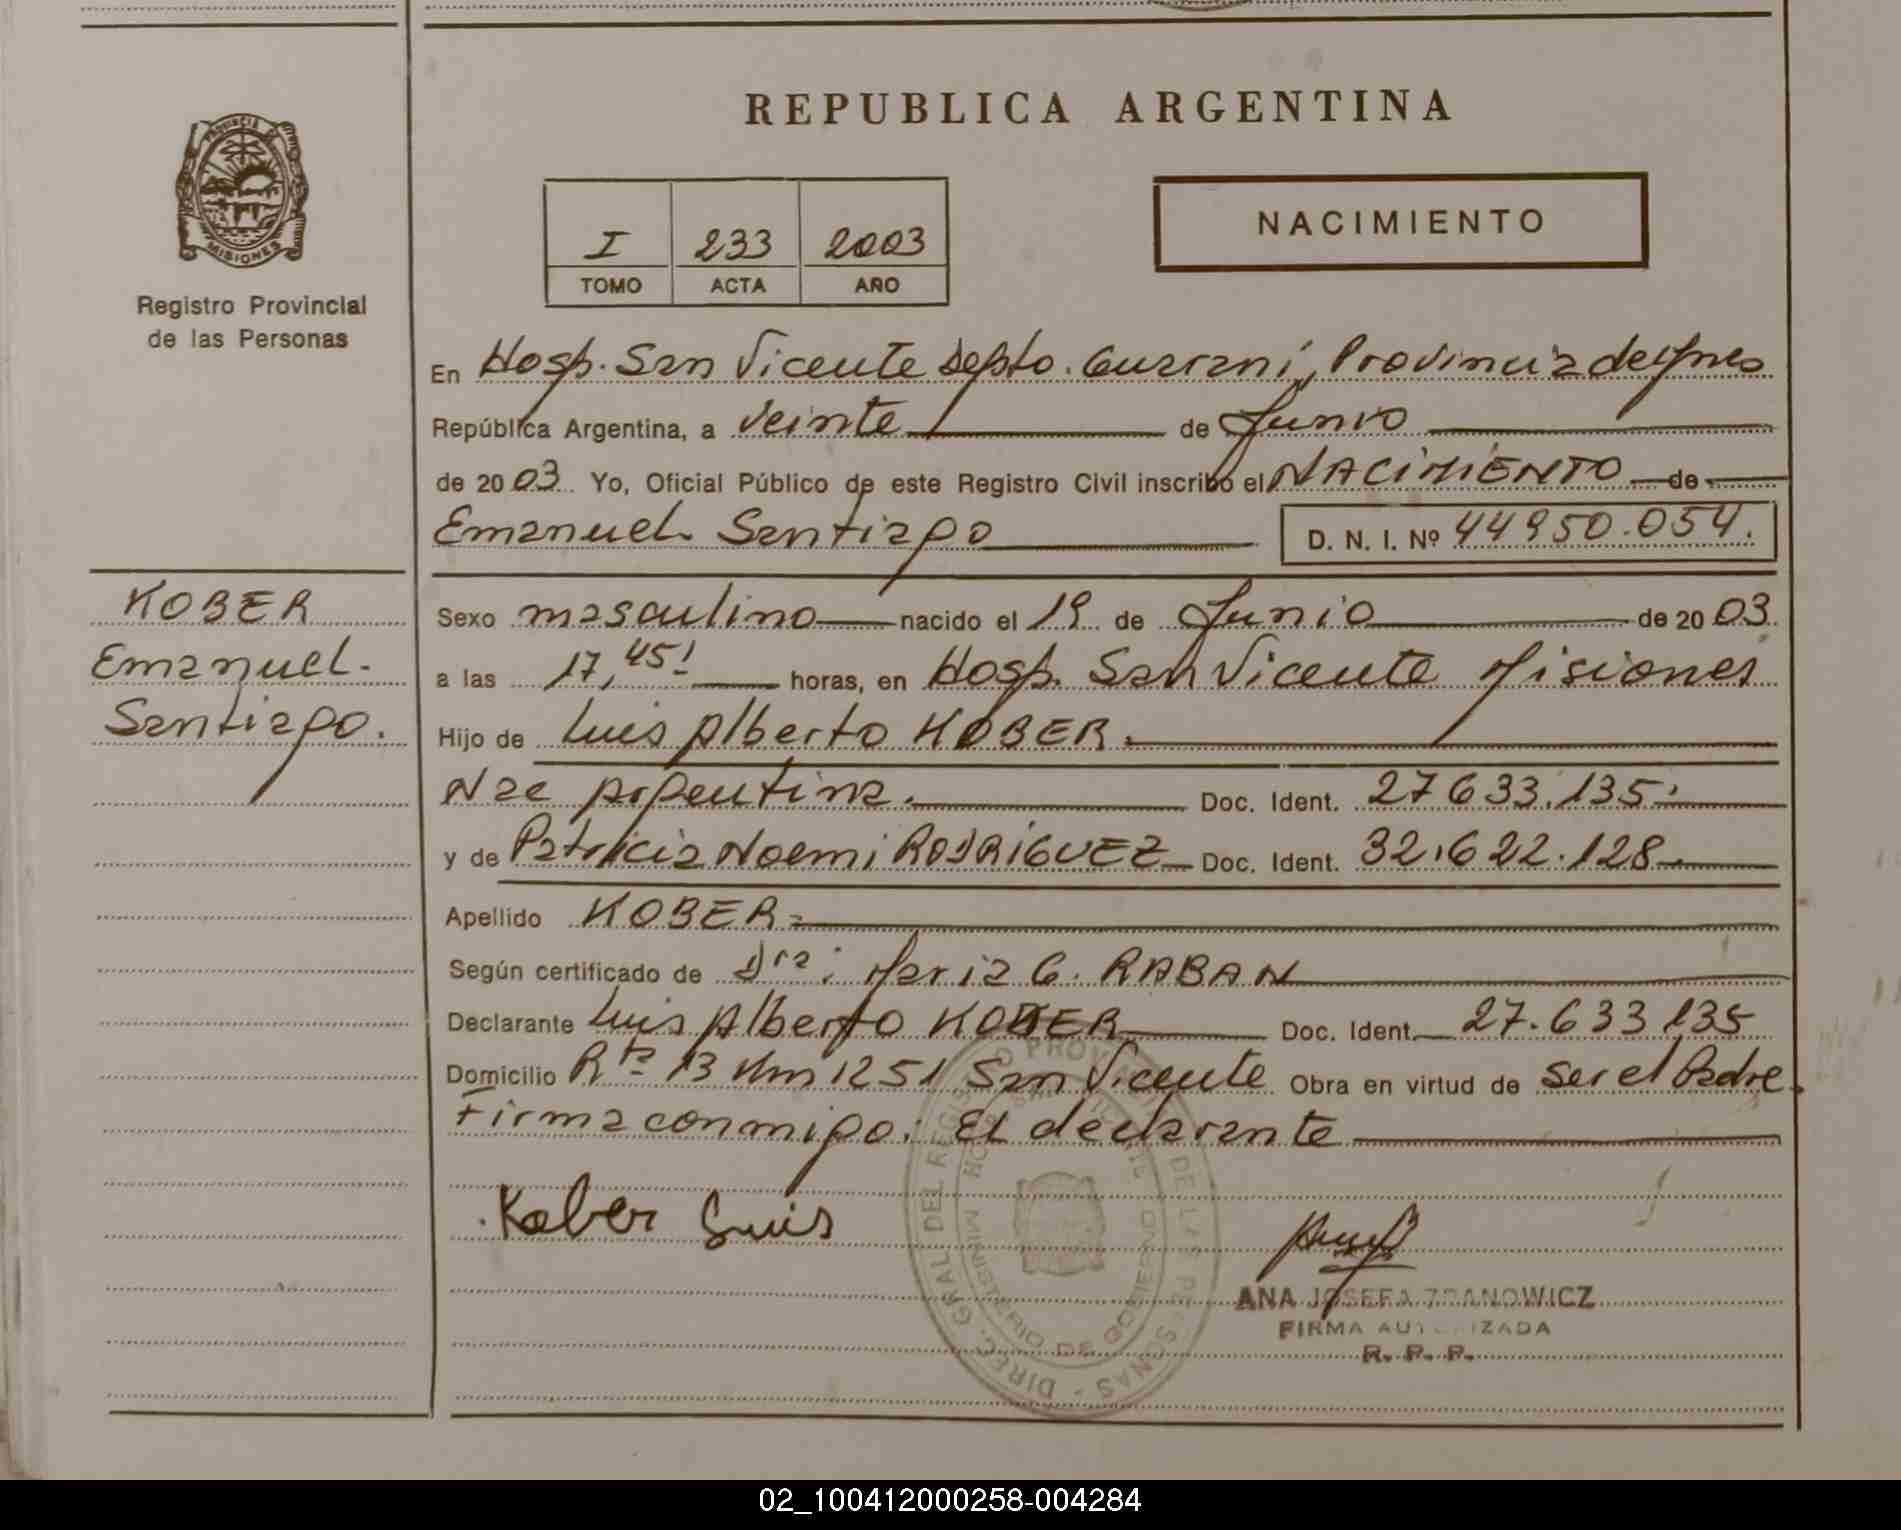 REPUBLICA ARGENTINA
PROVINCIA DE
MISIONES
Registro Provincial
de las Personas
I 233 2003
TOMO ACTA AÑO
NACIMIENTO
En Hosp. San Vicente Depto. Guaraní, Provincia de
República Argentina, a veinte de Junio
de 2003 Yo, Oficial Público de este Registro Civil inscribo el NACIMIENTO de
Emanuel Santiago D. N. I. Nº 44950.054.
KOBER
Emanuel
Santiago.
Sexo masculino nacido el 19 de Junio de 2003
a las 17,45' horas, en Hosp. San Vicente Misiones
Hijo de Luis Alberto KOBER.
Nac Argentina. Doc. Ident. 27633.135.
y de Patricia Noemi RODRIGUEZ Doc. Ident. 32.622.128
Apellido KOBER
Según certificado de Dra: Maria G. RABAN
Declarante Luis Alberto KOBER Doc. Ident. 27.633135
Domicilio Rta 13 Km 1251 San Vicente Obra en virtud de ser el Padre
Firma conmigo. El declarante
Kober Luis
DIREC. GRAL DEL REGISTRO PROVINCIAL DE LAS PERSONAS
MINISTERIO DE GOBIERNO
ANA JOSEFA
FIRMA AUTORIZADA
R. P. P.
02_100412000258-004284